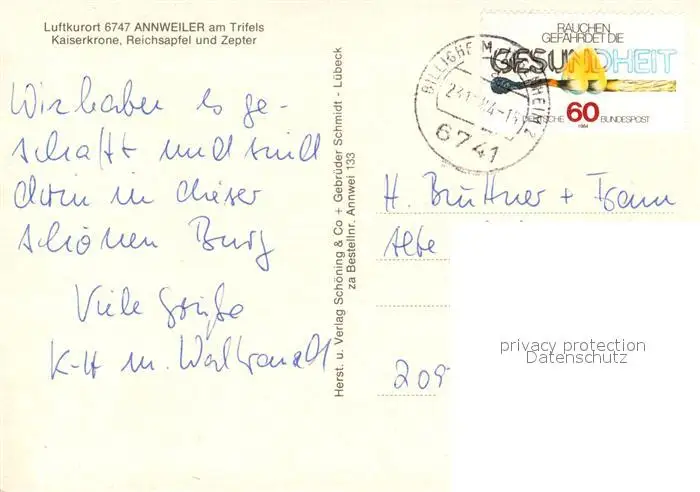 Luftkurort 6747 ANNWEILER am Trifels
Kaiserkrone, Reichsapfel und Zepter
Wir haben es ge-
schafft und sind
drin in dieser
schönen Burg
Viele Grüße
K-H u. Waltraudt
Herst. u. Verlag Schöning & Co + Gebrüder Schmidt - Lübeck
za Bestellnr. Annwei 133
RAUCHEN
GEFÄHRDET DIE
GESUNDHEIT
DEUTSCHE 60 BUNDESPOST
1984
6741
H. Brüttner + Frau
Alte
209
privacy protection
Datenschutz